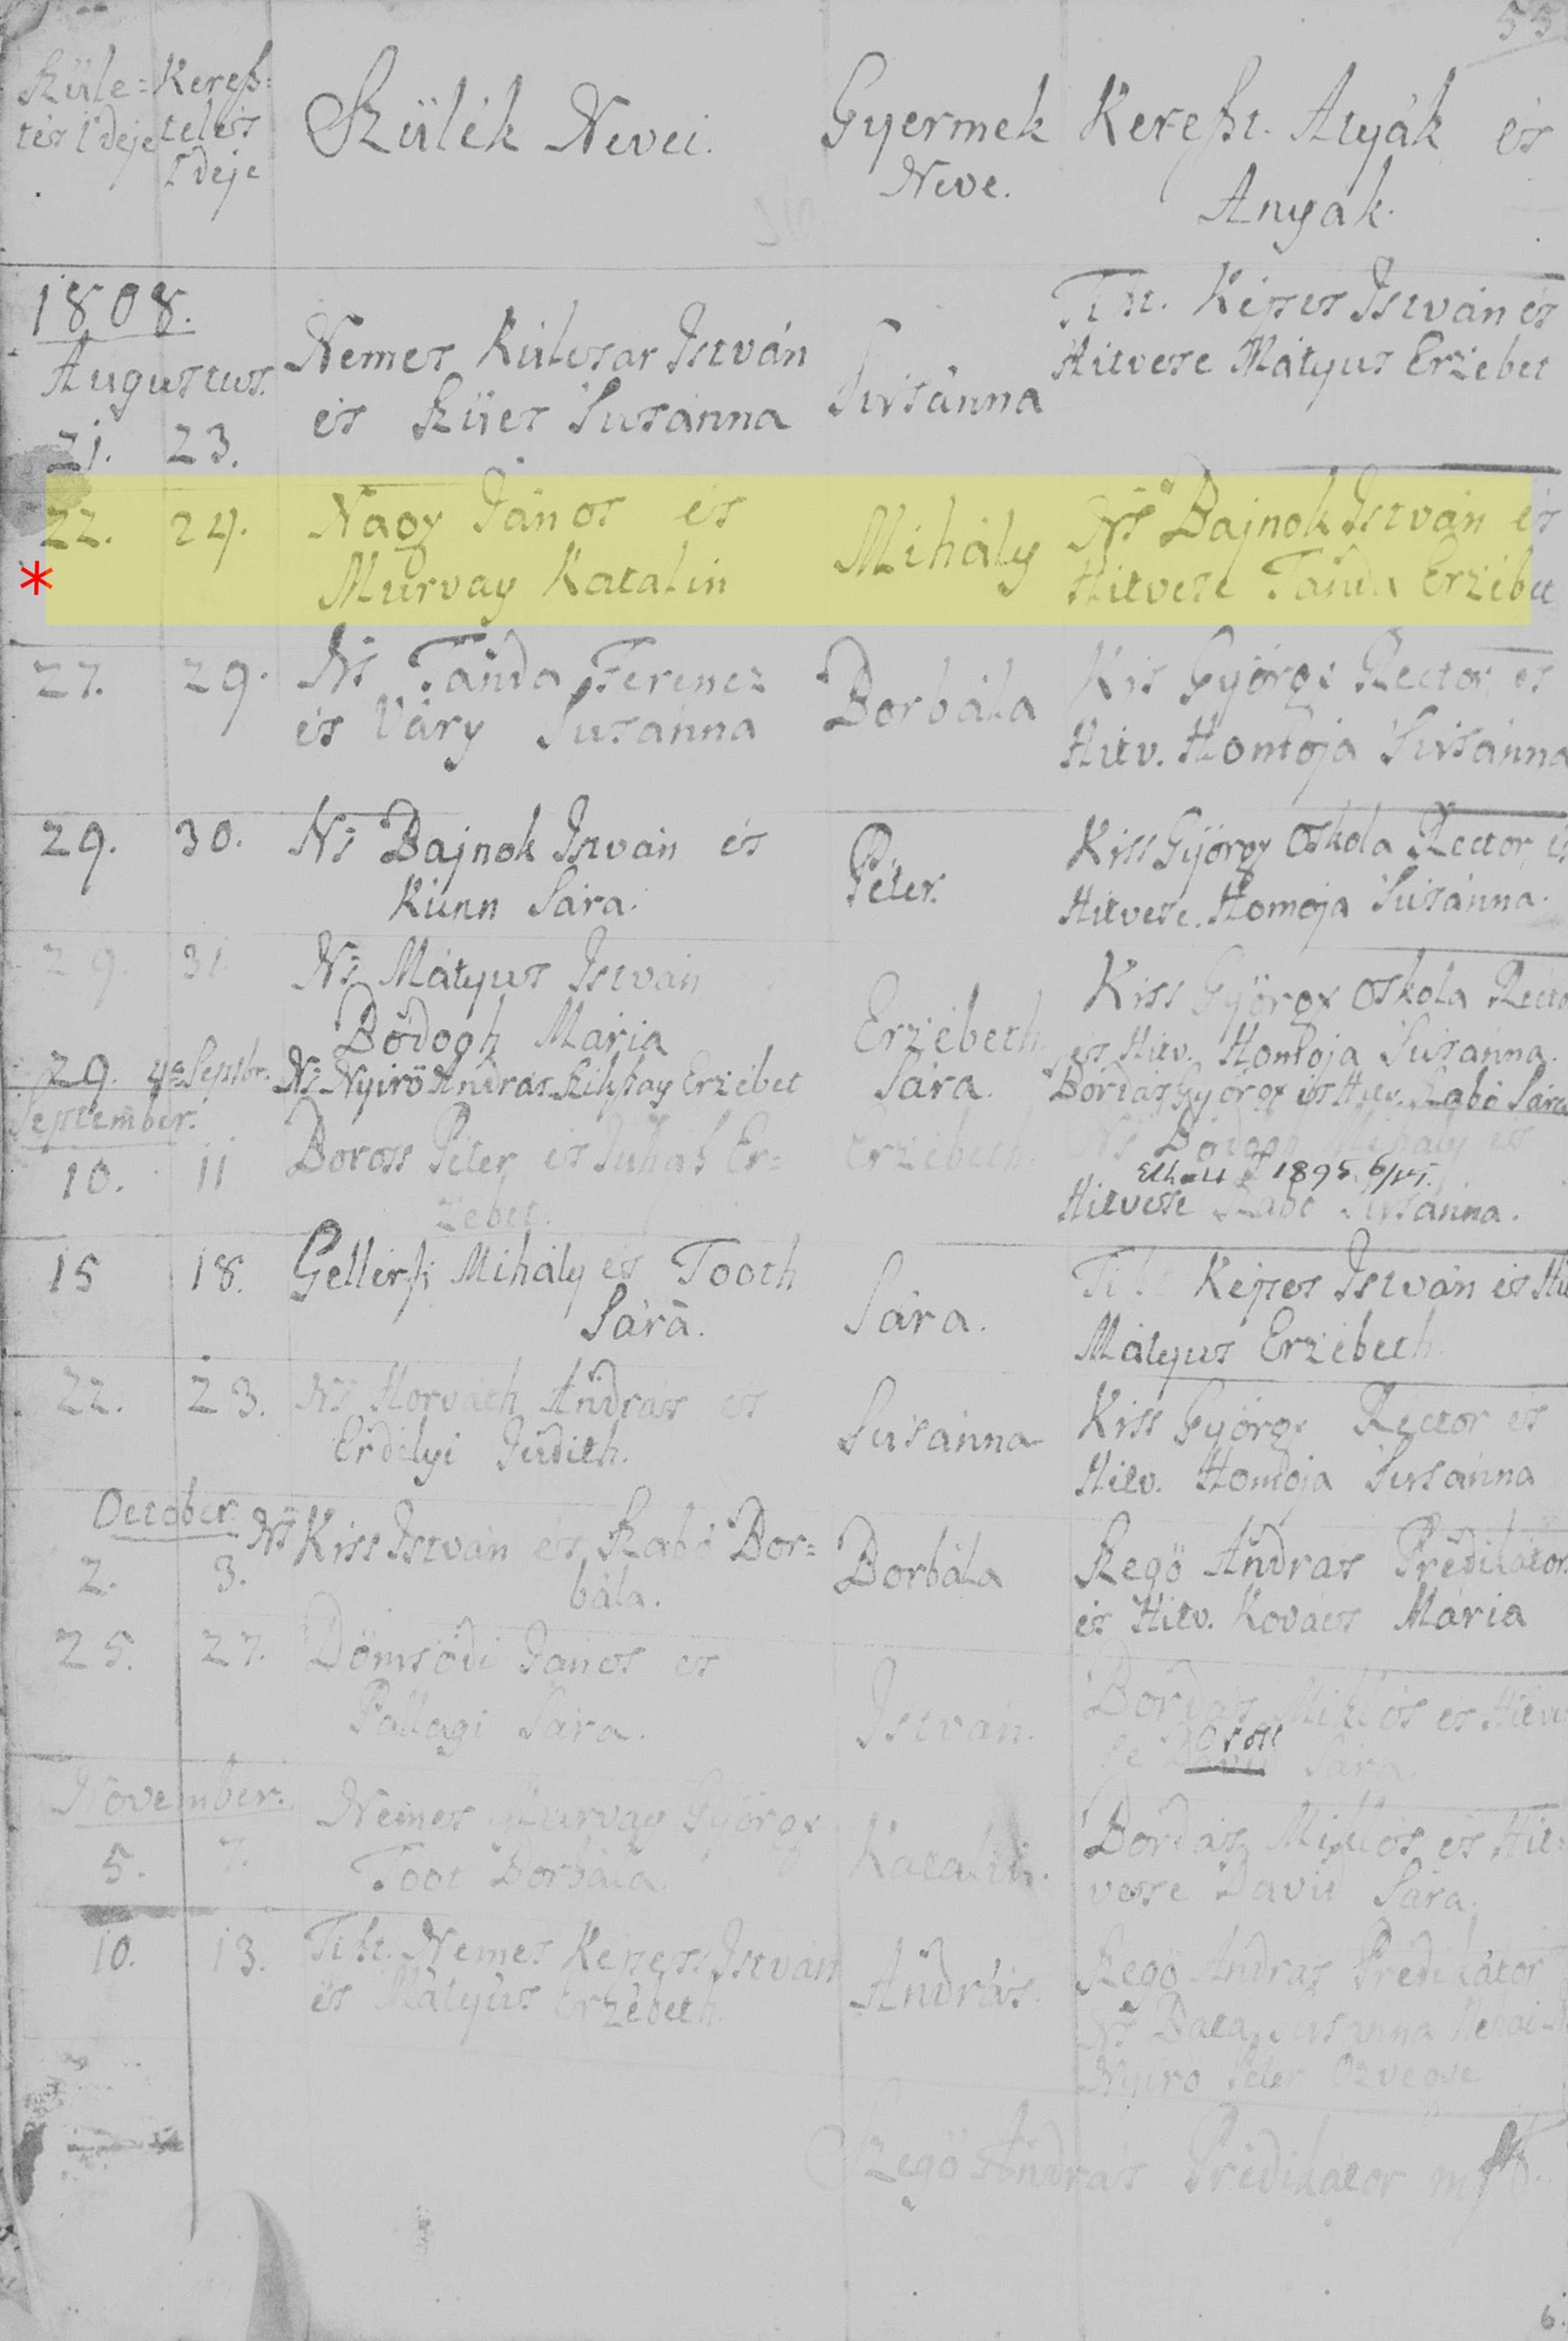 53
Szüle= Kereß=
tés Ideje telés
Ideje
Szülék Nevei.
Gyermek
Neve.
Kereßt. Atyák és
Anyák.
1808.
Augustus.
21. 23.
Nemes Kulcsar István
és Szües Susánna
Susánna
Tkt. Képes István és
Hitvese Mátyus Erzébet
22. 24.
Nagy János és
Murvay Katalin
Mihály
Ns Bajnok István és
Hitvese Tanda Erzébet
*
27. 29.
Ns Tanda Ferencz
és Váry Susánna
Borbála
Kis György Rector, és
Hitv. Homoja Susánna
29. 30.
Ns Bajnok István és
Kunn Sára.
Péter.
Kiss György Oskola Rector, és
Hitvese. Homoja Susánna.
29. 31.
Ns Mátyus István
Bódogh Mária
Erzébeth.
Kiss György Oskola Recto
és Hitv. Homoja Susánna.
29. 4a Septbr.
Ns Nyirö András Szikszay Erzébet
Sára.
Bordás György és Hitv. Szabó Sára
September.
10. 11
Boross Péter és Juhas Er=
zébet.
Erzébeth.
Ns Bódogh Mihály és
1895 6/
Hitvese Szabó Susánna.
15 18.
Gellérfi Mihály és Tooth
Sára.
Sára.
Képes István és Hit
Mátyus Erzébeth.
22. 23.
Ns Horváth András és
Erdélyi Judith.
Susánna
Kiss György Rector és
Hitv. Homoja Susánna
October.
2. 3.
Ns Kiss István és Szabó Bor=
bála.
Borbála
Szegö András Prédikátor.
és Hitv. Kovács Mária
25. 27.
Dömsödi János és
Pallagi Sára.
István.
Bordás Miklós és Hitve
se Sára.
November.
5. 7.
Nemes Murvay György
Toot Borbála
Katalin.
Bordás Miklós és Hit=
vese Dávid Sára.
10. 13.
Tkt. Nemes Képess István
és Mátyus Erzébeth.
András.
Szegö András Prédikátor
Ns Susánna Néhai
Nyirö Péter Özvegye
Szegö András Prédikátor
6.